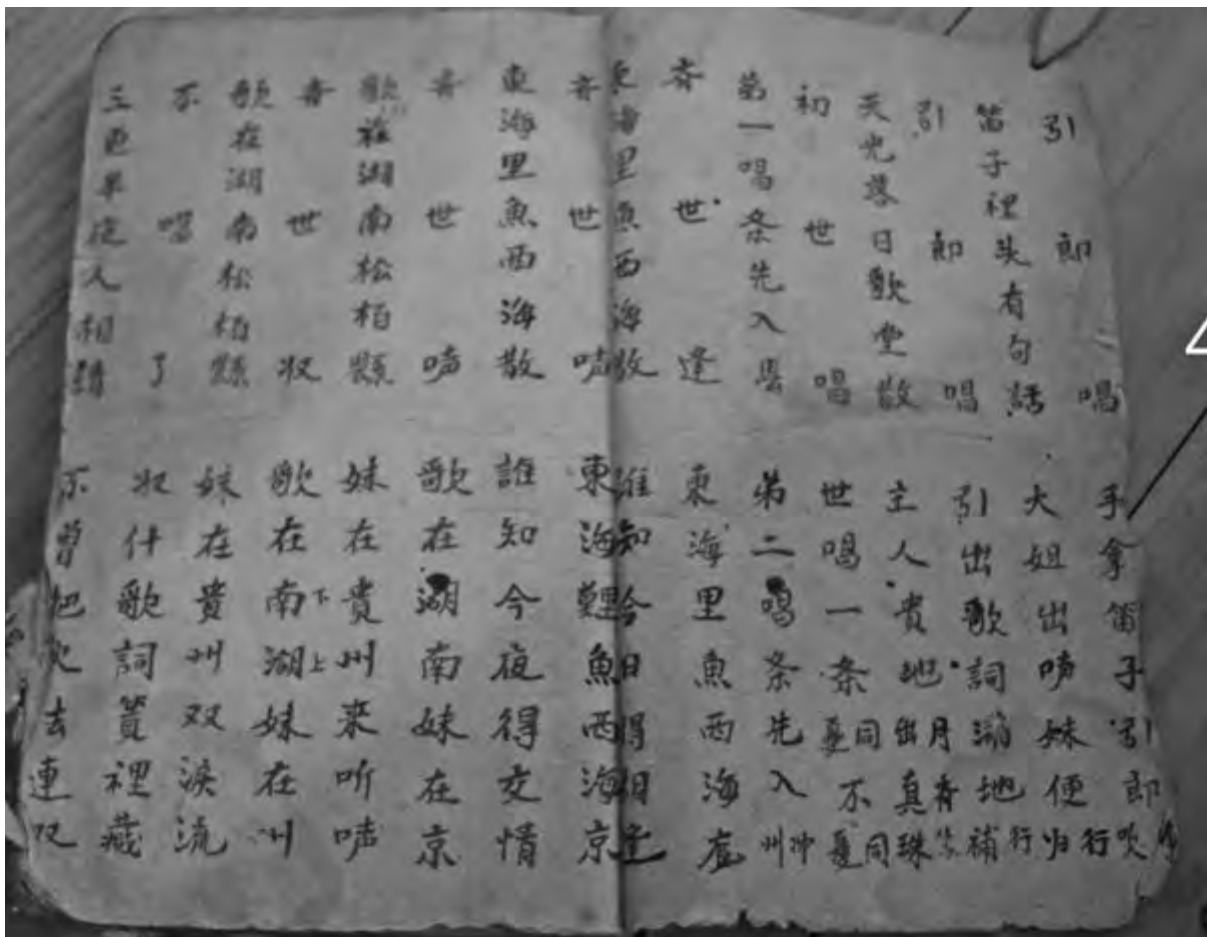 引郎唱
笛子裡头有句話
引郎唱
天光落日歌堂散
初世唱
第一唱条先入學
世逢
東海里魚西海散
世
東海里魚西海散
世
歌在湖南松柏縣
世収
歌在湖南松柏縣
不唱了
三更人相
手拿笛子引郎吹
大姐出妹便归行
引出歌詞满地補行
主人貴地出月真珠
世唱一条同不同
第二唱条先入州
東海里魚西海
誰知今日得相逢
東海鯉魚西海京
誰知今夜得交情
歌在湖南妹在京
妹在貴州来听
歌在南下湖上妹在州
妹在貴州双淚流
収什歌詞裡藏
不曾把火去連双